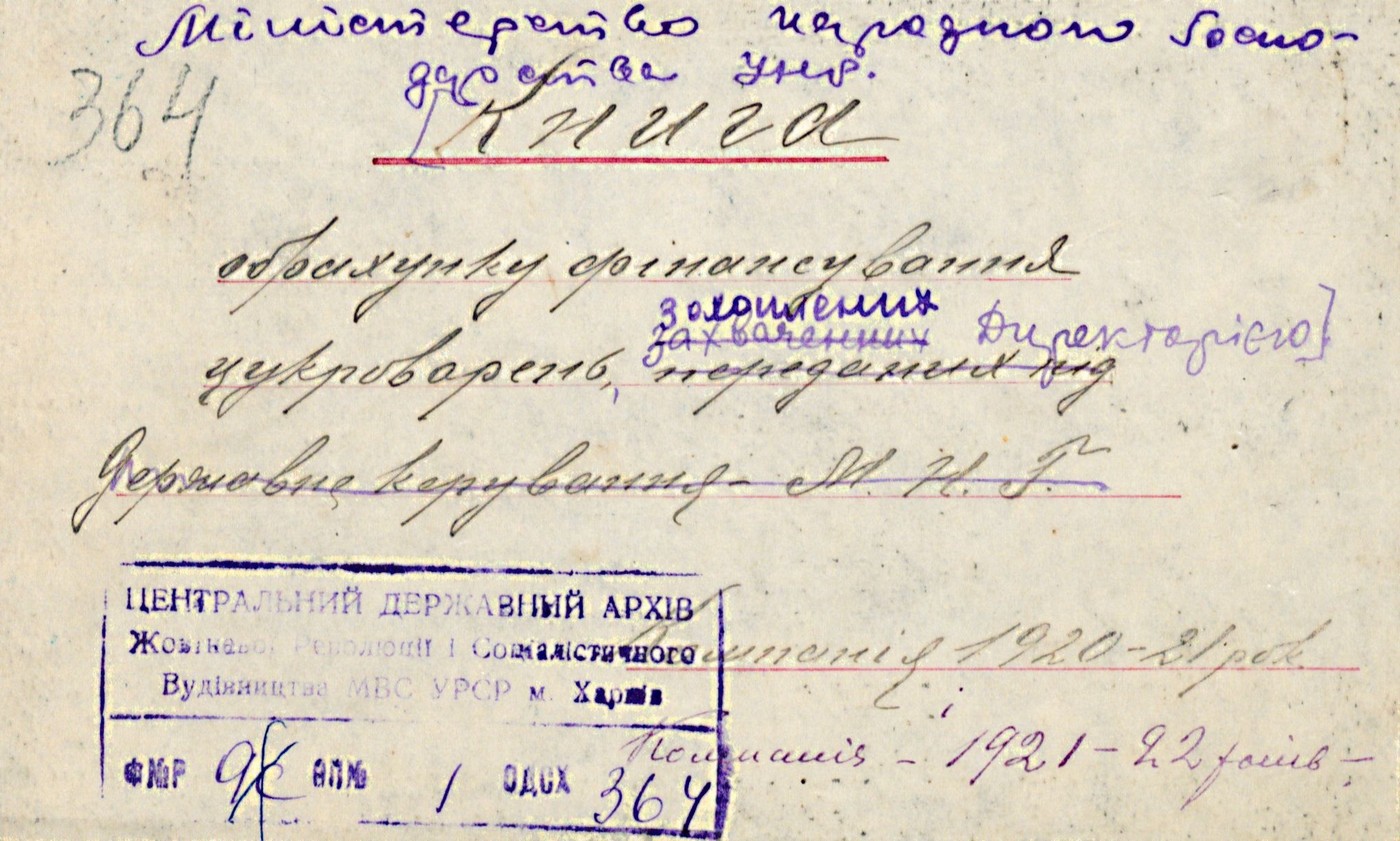 Міністерство народного Госпо-
дарства УНР.
364
[Книга
обрахунку фінансування
захоплених
захваченних Директорією]
цукроварень, переданих під
Державне керування - М. Н. Г.
ЦЕНТРАЛЬНИЙ ДЕРЖАВНИЙ АРХІВ
Жовтневої Революції і Соціалістичного
Будівництва МВС УРСР м. Харків
Кампанія 1920-21 рок.
і
Кампанія - 1921-22 років -
Ф№Р ОП№ 1 ОДСХ 364